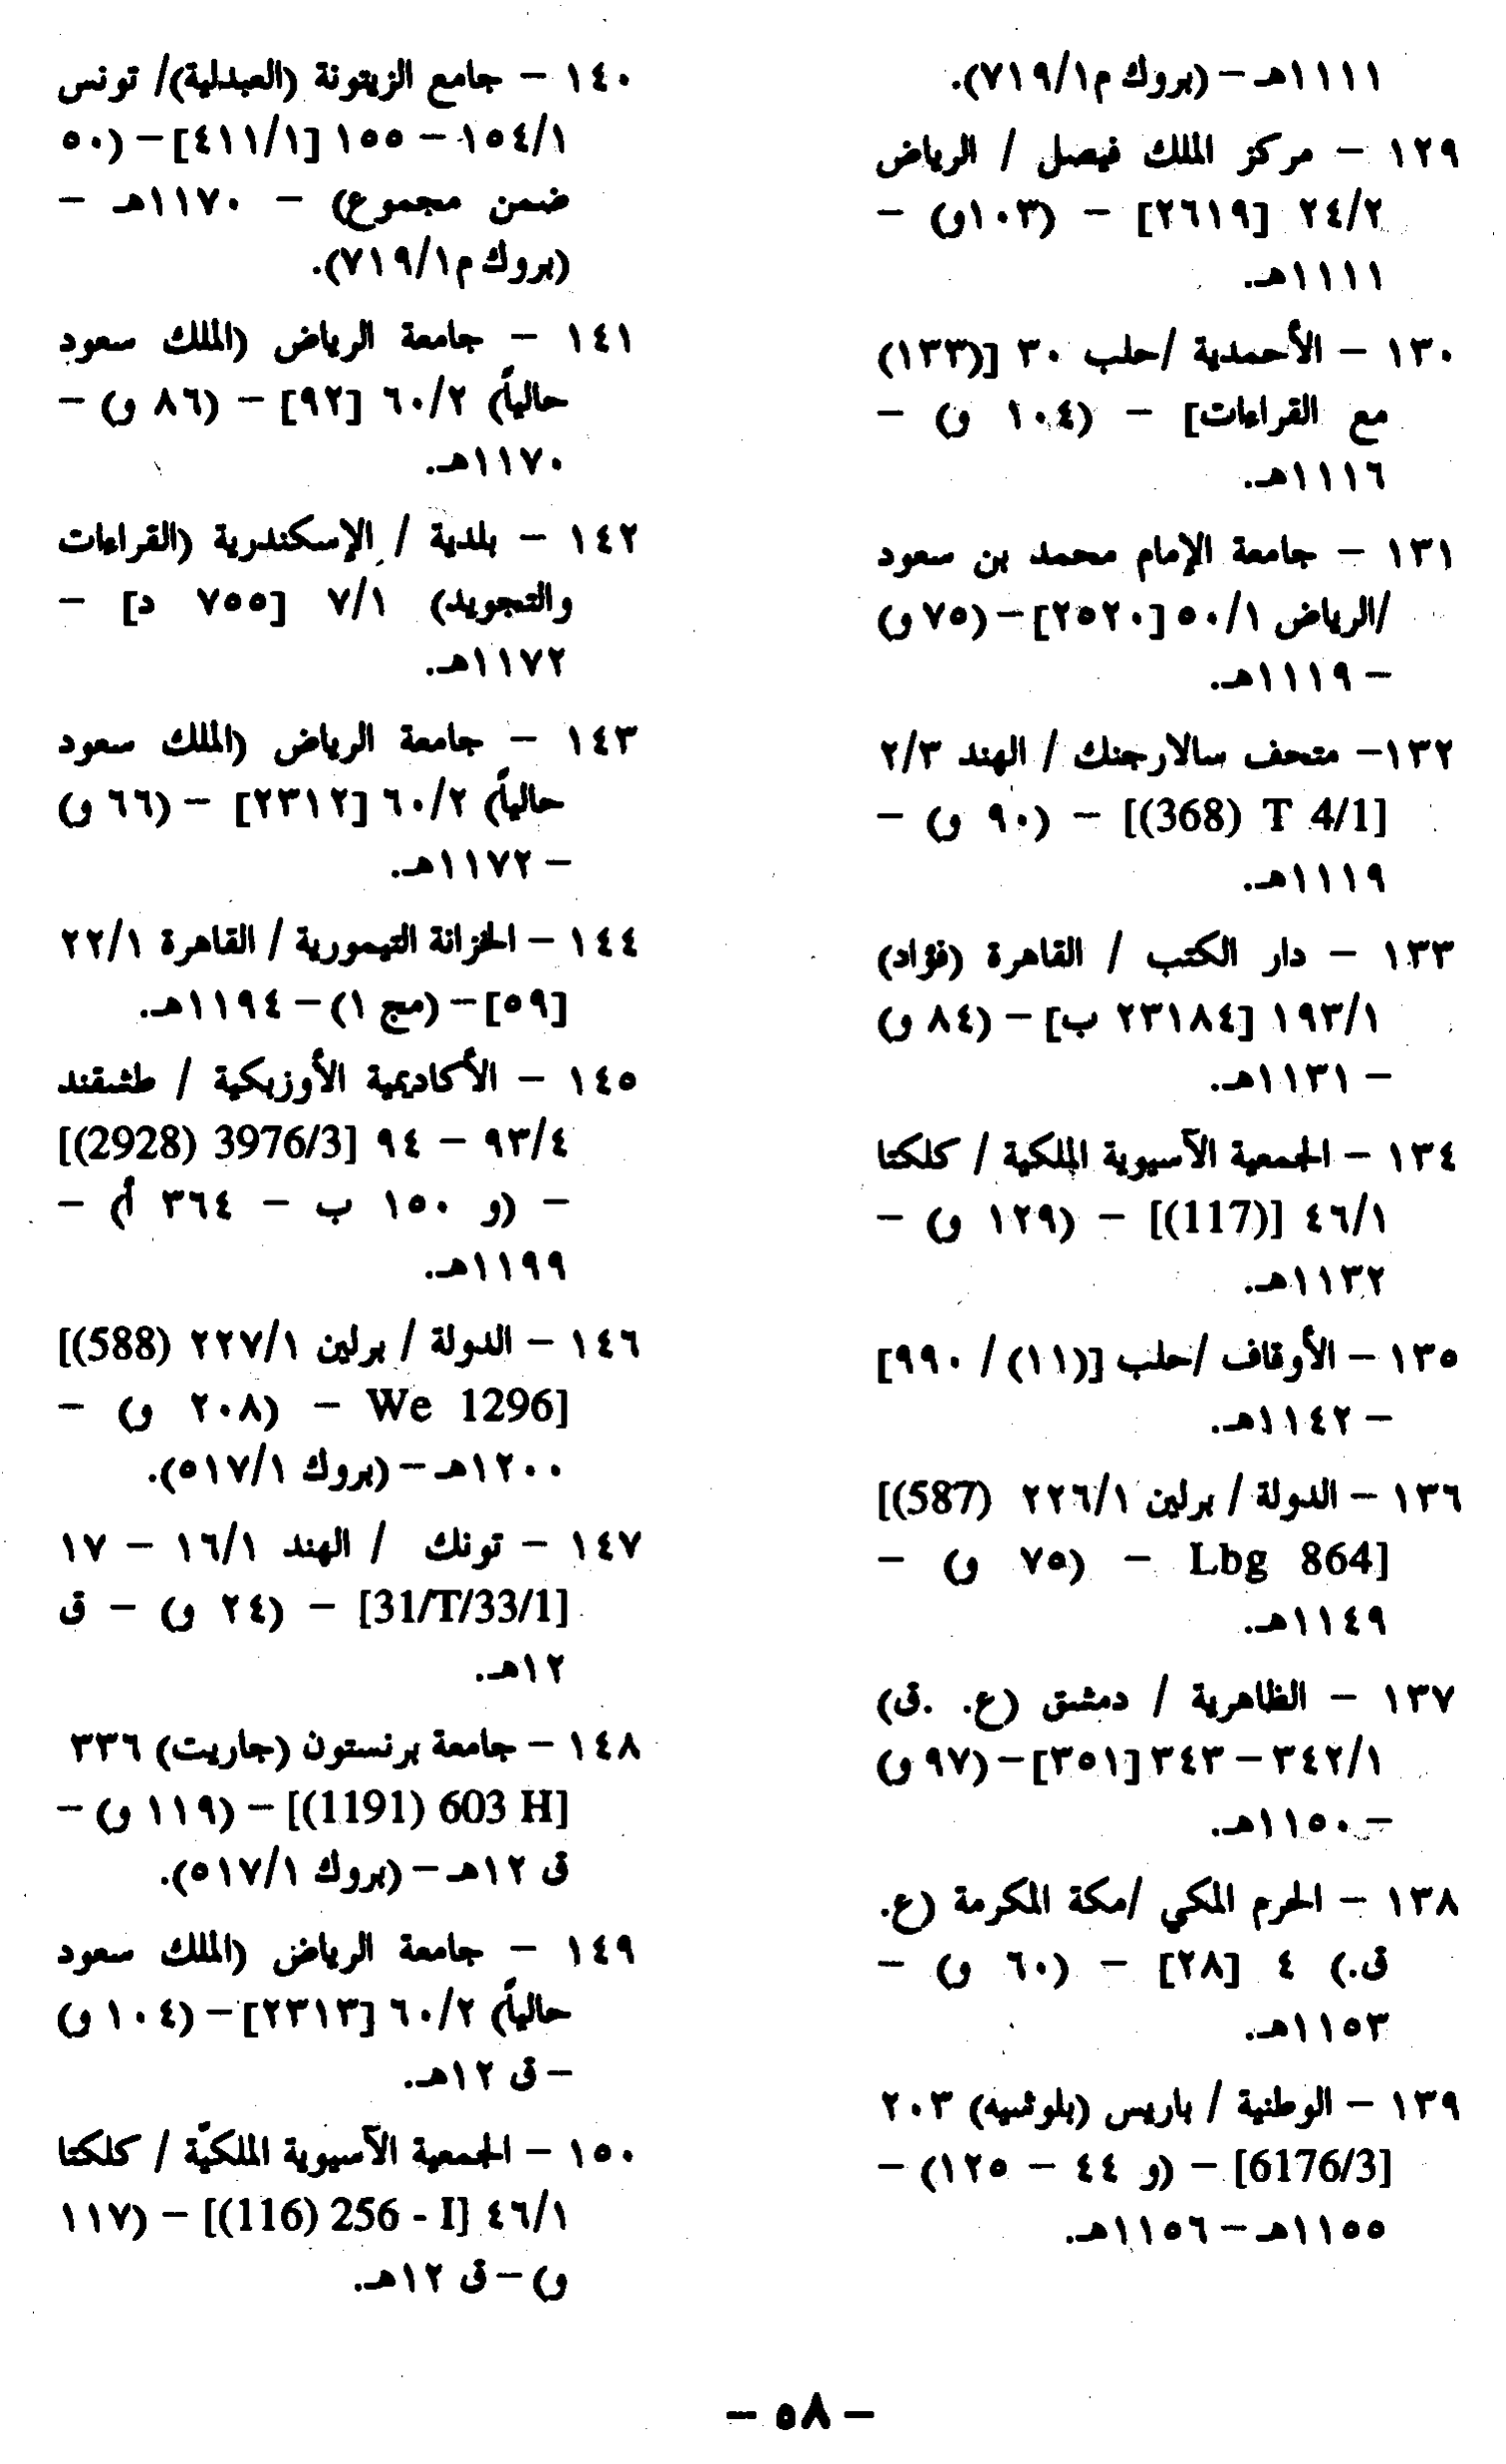 ١١١١هـ – (بروك م٧١٩/١).
١٢٩ – مركز الملك فيصل / الرياض
٢٤/٢ [٢٦١٩] – (١٠٣و) –
١١١١هـ.
١٣٠ – الأحمدية /حلب ٣٠ [(١٣٣)
مع القراءات] – (١٠٤ و) –
١١١٦هـ.
١٣١ – جامعة الإمام محمد بن سعود
/الرياض ٥٠/١ [٢٥٢٠] – (٧٥ و)
– ١١١٩هـ.
١٣٢– متحف سالارجنك / الهند ٢/٣
[(368) T 4/1] – (٩٠ و) –
١١١٩هـ.
١٣٣ – دار الكتب / القاهرة (فؤاد)
١٩٣/١ [٢٣١٨٤ ب] – (٨٤ و)
– ١١٣١هـ.
١٣٤ – الجمعية الآسيوية الملكية / كلكتا
٤٦/١ [(117)] – (١٢٩ و) –
١١٣٢هـ.
١٣٥ – الأوقاف /حلب [(١١) / ٩٩٠]
– ١١٤٢هـ.
١٣٦ – الدولة / برلين ٢٢٦/١ [(587)
Lbg 864] – (٧٥ و) –
١١٤٩هـ.
١٣٧ – الظاهرية / دمشق (ع. .ق)
٣٤٢/١ – ٣٤٣ [٣٥١] – (٩٧ و)
– ١١٥٠هـ.
١٣٨ – الحرم المكي /مكة المكرمة (ع.
ق.) ٤ [٢٨] – (٦٠ و) –
١١٥٣هـ.
١٣٩ – الوطنية / باريس (بلوشيه) ٢٠٣
[6176/3] – (و ٤٤ – ١٢٥) –
١١٥٥هـ – ١١٥٦هـ.
١٤٠ – جامع الزيتونة (العبدلية)/ تونس
١٥٤/١ – ١٥٥ [٤١١/١] – (٥٠
ضمن مجموع) – ١١٧٠هـ –
(بروك م٧١٩/١).
١٤١ – جامعة الرياض (الملك سعود
حالياً) ٦٠/٢ [٩٢] – (٨٦ و) –
١١٧٠هـ.
١٤٢ – بلدية / الإسكندرية (القراءات
والتجويد) ٧/١ [٧٥٥ د] –
١١٧٢هـ.
١٤٣ – جامعة الرياض (الملك سعود
حالياً) ٦٠/٢ [٢٣١٢] – (٦٦ و)
– ١١٧٢هـ.
١٤٤ – الخزانة التيمورية / القاهرة ٢٢/١
[٥٩] – (مج ١) – ١١٩٤هـ.
١٤٥ – الأكاديمية الأوزبكية / طشقند
٩٣/٤ – ٩٤ [(2928) 3976/3]
– (و ١٥٠ ب – ٣٦٤ أ) –
١١٩٩هـ.
١٤٦ – الدولة / برلين ٢٢٧/١ [(588)
We 1296] – (٢٠٨ و) –
١٢٠٠هـ – (بروك ٥١٧/١).
١٤٧ – تونك / الهند ١٦/١ – ١٧
[31/T/33/1] – (٢٤ و) – ق
١٢هـ.
١٤٨ – جامعة برنستون (جاريت) ٣٣٦
[(1191) 603 H] – (١١٩ و) –
ق ١٢هـ – (بروك ٥١٧/١).
١٤٩ – جامعة الرياض (الملك سعود
حالياً) ٦٠/٢ [٢٣١٣] – (١٠٤ و)
– ق ١٢هـ.
١٥٠ – الجمعية الآسيوية الملكيّة / كلكتا
٤٦/١ [(116) 256 - I] – (١١٧
و) – ق ١٢هـ.
– ٥٨ –